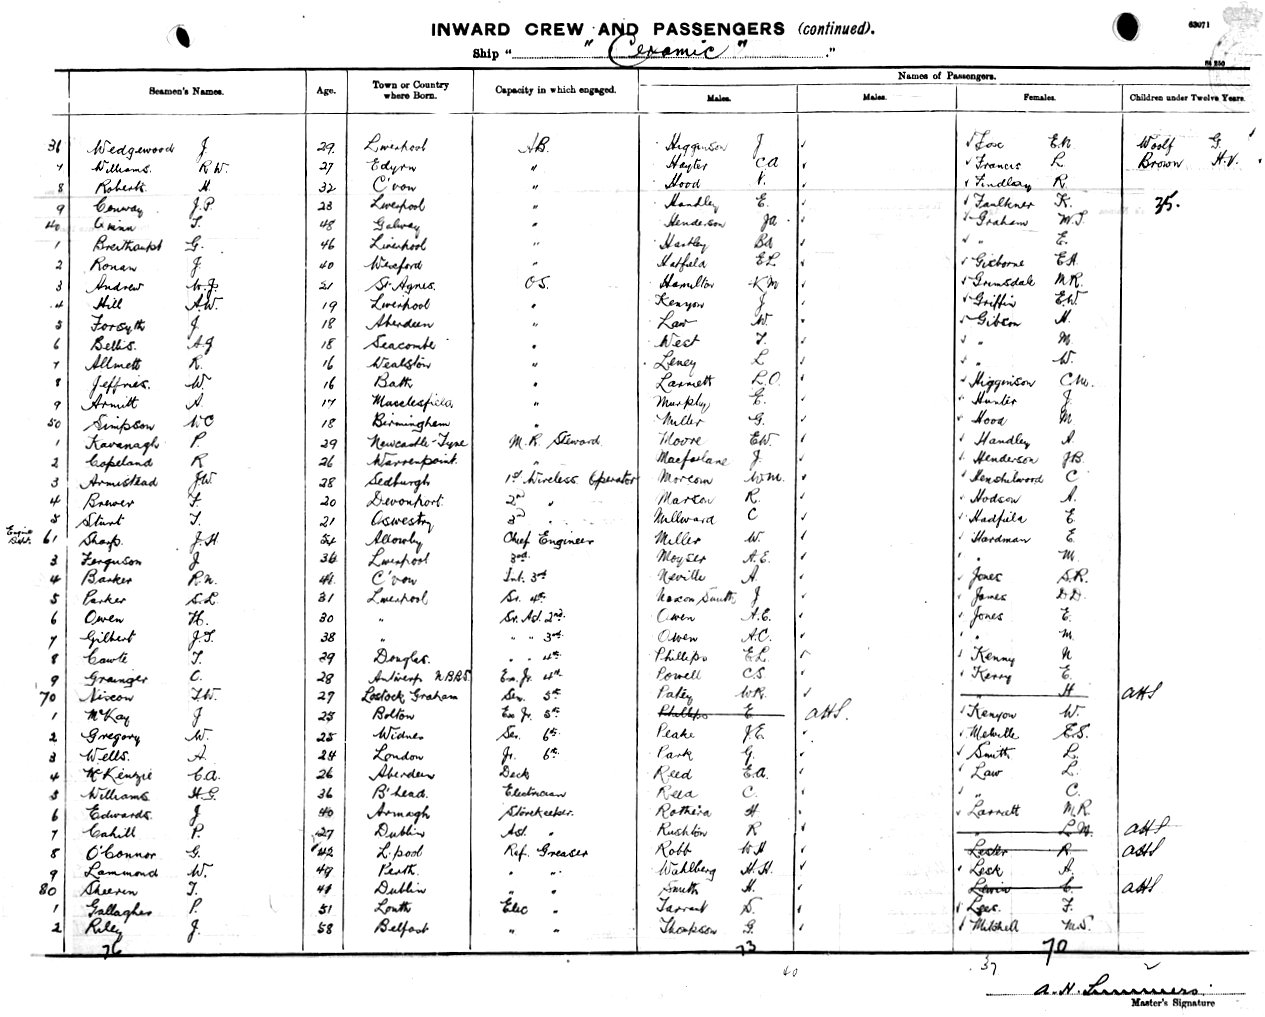 63071
INWARD CREW AND PASSENGERS (continued).
Ship " "Ceramic" "
Seamen's Names. Age. Town or Country where Born. Capacity in which engaged. Names of Passengers.
Males. Males. Females. Children under Twelve Years.
36 Wedgewood J 29 Liverpool AB. Higginson J Fox E.M. Woolf G.
7 Williams R.W. 27 Edyrn " Hayter C.A. Francis L. Brown H.V.
8 Roberts H 32 C'von " Hood V. Findlay R.
9 Conway J.P. 23 Liverpool " Handley E. Faulkner K. 35.
40 T. 48 Galway " Henderson Ja Graham M.J.
1 Breithaupt G. 46 Liverpool " Hartley Bd " E.
2 Ronan J. 40 Wexford " Hatfield E.L. Gisborne E.A
3 Andrew W.J. 21 St Agnes. O.S. Hamilton K M Grimsdale M.R.
4 Hill A.W. 19 Liverpool " Kenyon J Griffin E.W.
5 Forsyth J. 18 Aberdeen " Law W. Gibson H.
6 Bellis A.J 18 Seacombe " West T. " M
7 Allmett R. 16 Wealston " Leney L " W.
8 Jeffries. W. 16 Bath " Larnett L.O. Higginson C.M.
9 Armitt A. 17 Macclesfield. " Murphy E. Hunter J
50 Simpson W C 18 Birmingham " Miller G. Hood M
1 Kavanagh P. 29 Newcastle-Tyne M.R. Steward Moore E.W. Handley A.
2 Copeland R 26 Warrenpoint. " Macfarlane J. Henderson J.B.
3 Armistead J.W 28 Sedburgh 1st Wireless Operator Morcom Wm. Henshilwood C
4 Brewer F. 20 Devonport. 2nd " Marson R. Hodson A.
5 Sturt T. 21 Oswestry 3rd " Millward C Hadfield E.
Engine Dept. 61 Sharp. J.H 54 Allowby Chief Engineer Miller W. Hardman E.
3 Ferguson J 36 Liverpool 3rd. Moyser A.E. " M
4 Barker R.N. 44 C'von Int. 3rd Neville A. Jones S.R.
5 Parker S.L. 31 Liverpool Sr. 4th Nixon Smith J James D.D.
6 Owen H. 30 " Sr. Ad. 2nd. Owen A.E. Jones E.
7 Gilbert J.T. 38 " " " 3rd. Owen A.C. " M.
8 Cawte T. 29 Douglas. " " 4th. Phillips E.L. Kenny N
9 Grainger C. 28 Antwerp N.B.R.S. Ex. Jr. 4th Powell C.S. Kerry E.
70 Nixon T.W. 27 Lostock Graham Sen. 5th Patey W.R. " H AHS
1 McKay J 25 Bolton Ex Jr. 5th Phillips E AHS. Kenyon W.
2 Gregory W. 25 Widnes Sen. 6th Peake J.E. Melville E.S.
3 Wells. A. 24 London Jr. 6th Park G. Smith L.
4 McKenzie C.A. 26 Aberdeen Deck Reed E.A. Law L.
5 Williams H.G. 36 B'head. Electrician Reed C. " C.
6 Edwards J 40 Armagh Storekeeper. Rothera H. Larratt M.R.
7 Cahill P. 27 Dublin Ast. " Rushton R " L.M. AHS
8 O'Connor G. 42 L.pool Ref. Greaser Robb W H Lester R. AHS
9 Lammond W. 49 Perth. " " Wahlberg H.H. Lock A.
80 Sheeren T. 41 Dublin " " Smith H. Lewin C. AHS
1 Gallagher P. 51 Louth Elec " Tarrant S. Lees. F.
2 Riley J. 58 Belfast " " Thompson G. Mitchell M.S.
76 73 70
60 37 2
A. H. Summers.
Master's Signature